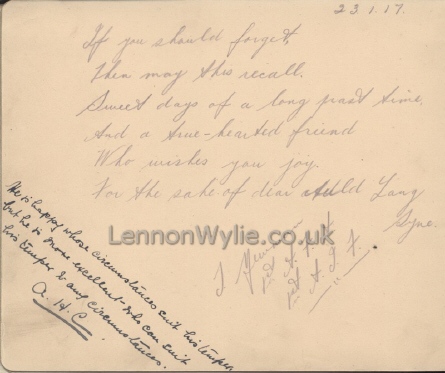 23.1.17.
If you should forget,
Then may this recall.
Sweet days of a long past time,
And a true-hearted friend
Who wishes you joy
For the sake of dear auld Lang
Syne.
LennonWylie.co.uk
J.
A. I. F.
He is happy whose circumstances suit his temper
but he is more excellent who can suit
his temper to any circumstances.
A. H. C.